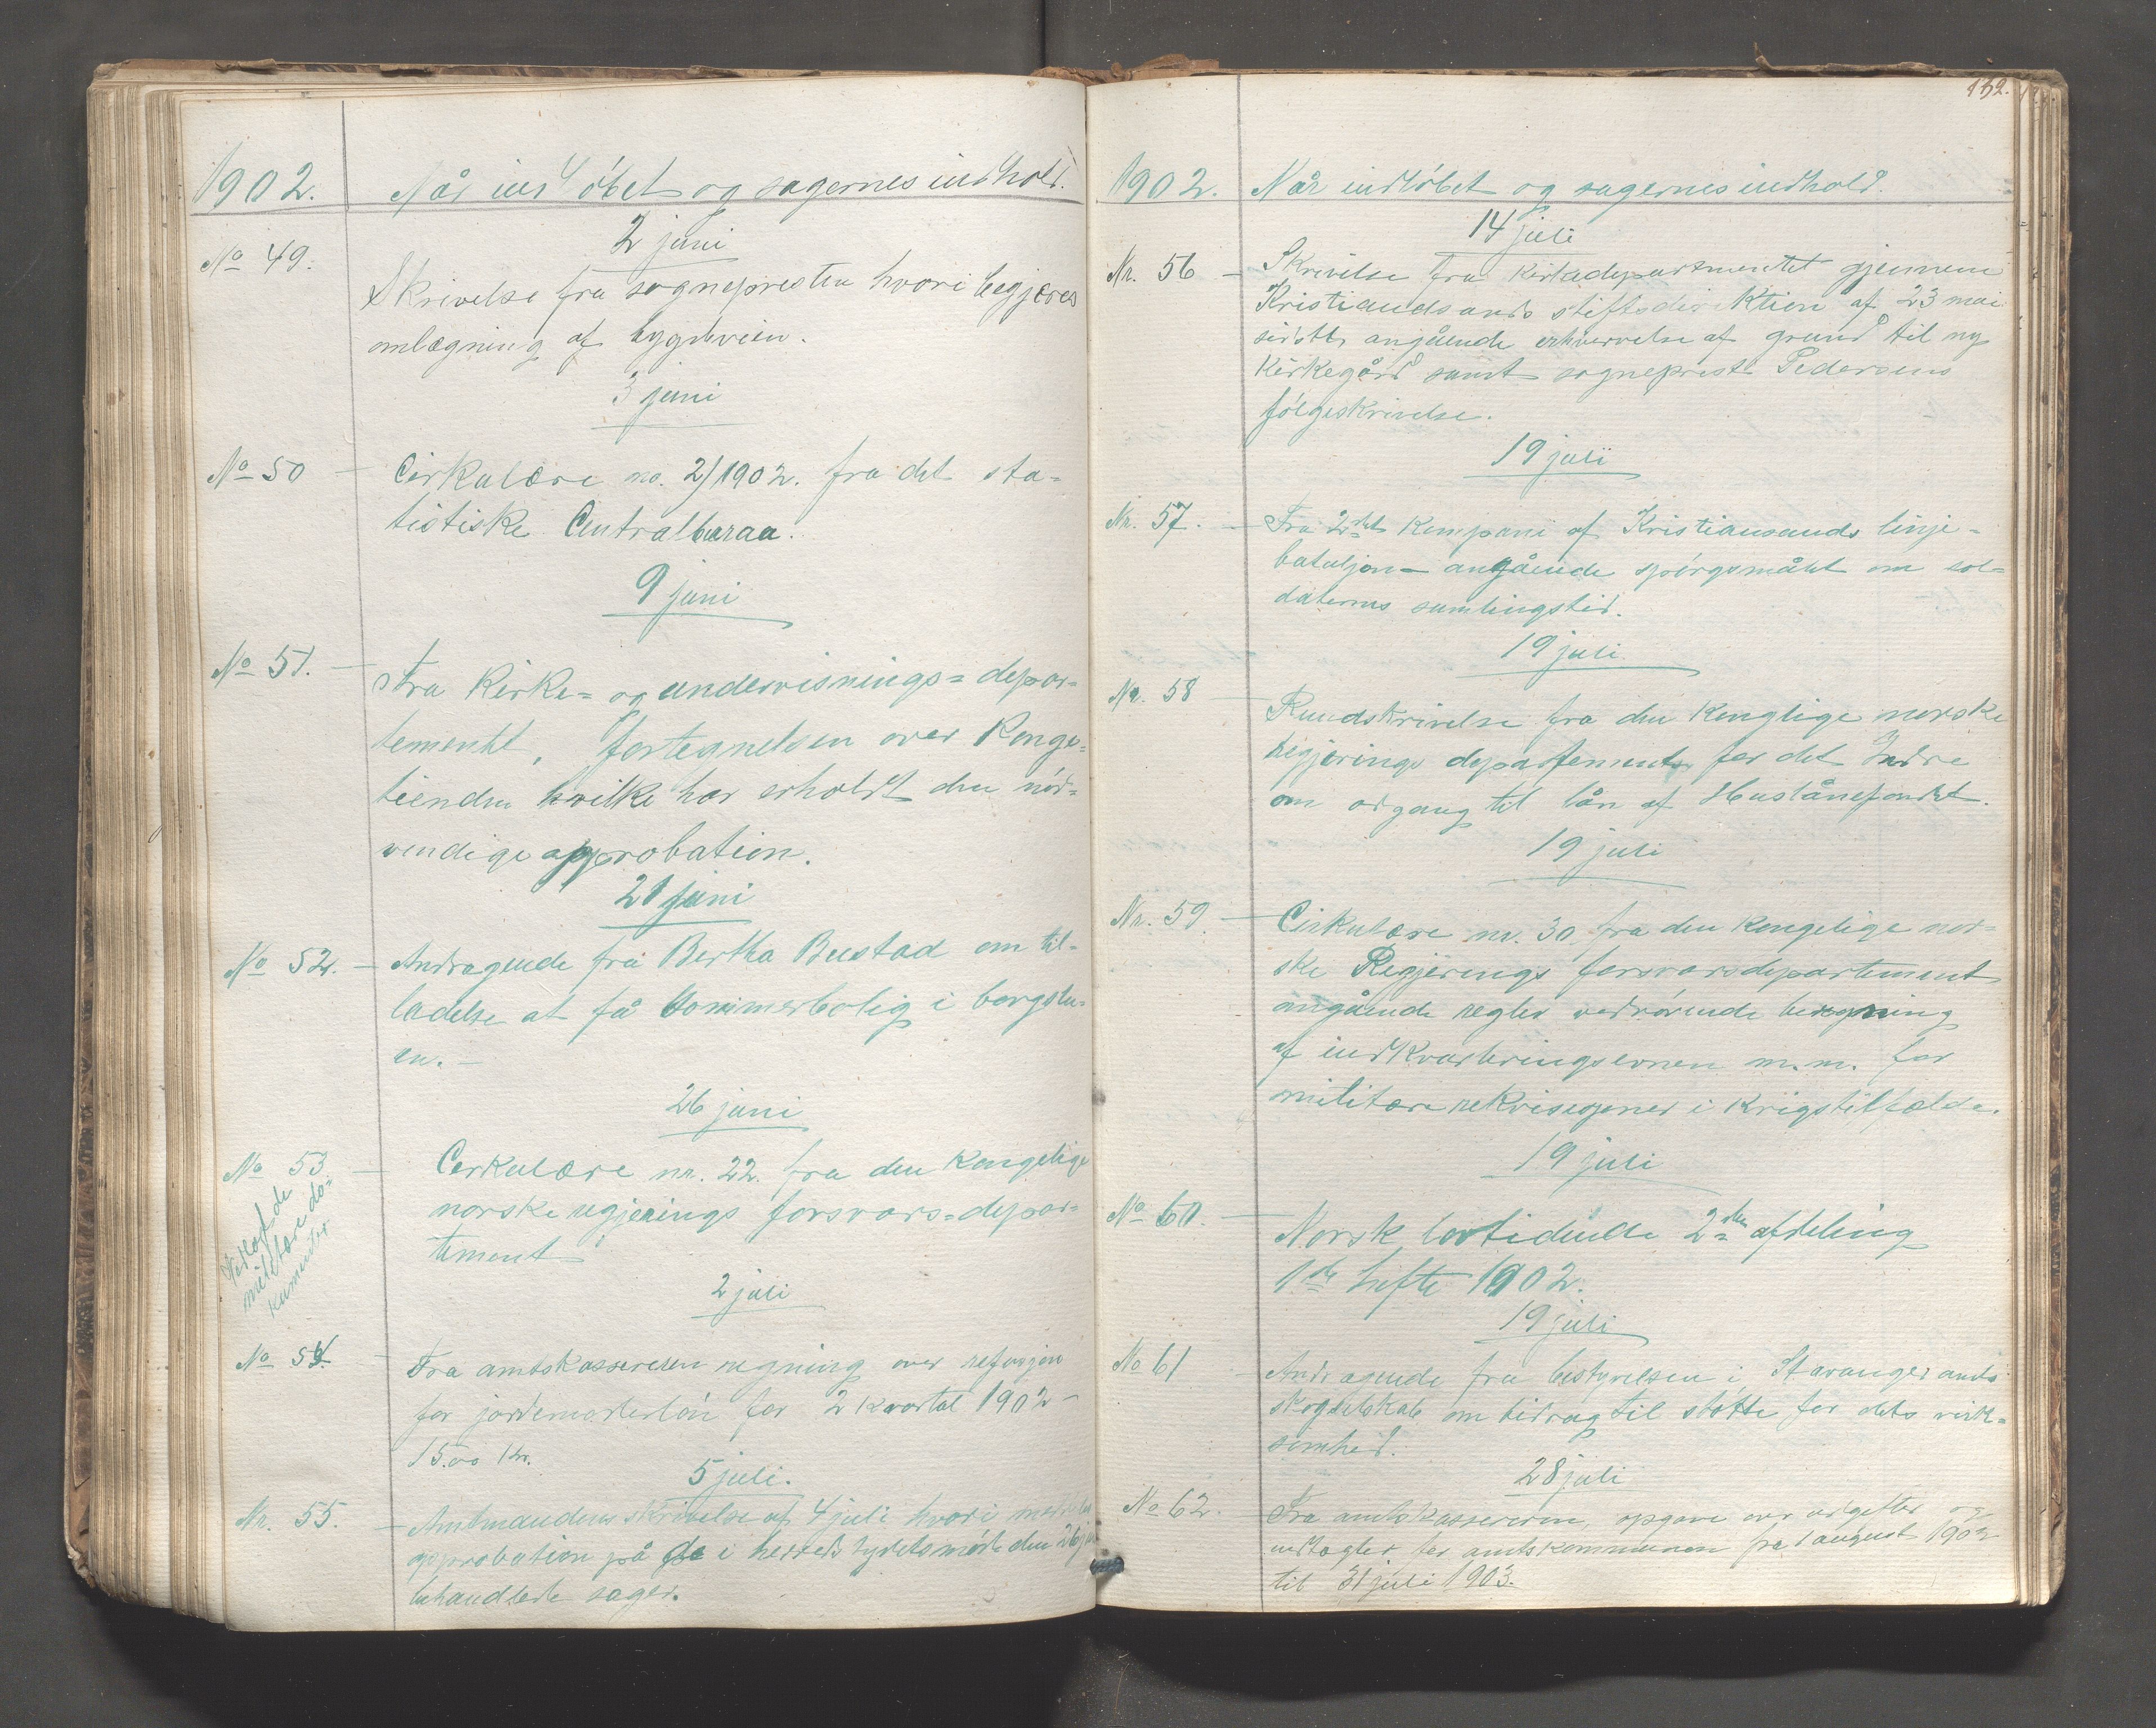 1902.
Når indløbet og sagernes indhold.
2 juni
No 49.
Skrivelse fra sognepresten hvori begjæres
omlægning af bygdeveien.
3 juni
No 50 —
Cirkulære no. 2/1902. fra det sta=
tistiske Centralburaa.
9 juni
No 51. —
Fra Kirke= og undervisnings= depar=
tementet, fortegnelsen over Konge=
tienden hvilke har erholdt den nød=
vendige approbation.
21 juni
No 52. —
Andragende fra Bertha Bustad om til=
ladelse at få sommerbolig i borgstu=
en. —
26 juni
No 53 —
Cirkulære nr. 22. fra den Kongelige
norske regjerings forsvars=depar=
tement
militære do=
kumenter
2 juli
No 54. —
Fra amtskassereren regning over refusjon
for jordemoderløn for 2 kvartal 1902 —
15.00 kr.
5 juli.
Nr. 55. —
Amtmandens skrivelse af 4 juli hvori meddeles
approbation på de i herredsstyrelsmøde den 26 juni
behandlede sager.
132.
1902.
Når indløbet og sagernes indhold.
14 juli
Nr. 56 —
Skrivelse fra Kirkedepartmentet gjennem
Kristiandsands stiftsdirektion af 23 mai
sidstl. angående erhvervelse af grund til ny
Kirkegård samt sogneprest Pedersens
følgeskrivelse.
19 juli
Nr. 57. —
Fra 2det Kompani af Kristiansands linje=
bataljon — angående spørgsmålet om sol=
daternes samlingstid.
19 juli
Nr. 58 —
Rundskrivelse fra den Konglige norske
regjerings departement for det Indre
om adgang til lån af Huslånefondet.
19 juli
Nr. 59. —
Cirkulære nr. 30 fra den Kongelige nor=
ske Regjerings forsvarsdepartement
angående regler vedrørende beregning
af indkvarteringsevnen m.m. for
militære rekvisisjoner i Krigstilfælde.
19 juli
No 60. —
Norsk lovtidende 2den afdeling
1ste hefte 1902.
19 juli
No 61 —
Andragende fra bestyrelsen i Stavanger amts
skogselskab om bidrag til støtte for dets virk=
somhed.
28 juli
No 62. —
Fra amtskassereren, opgave over udgifter og
indtægter for amtskommunen fra 1 august 1902
til 31 juli 1903.